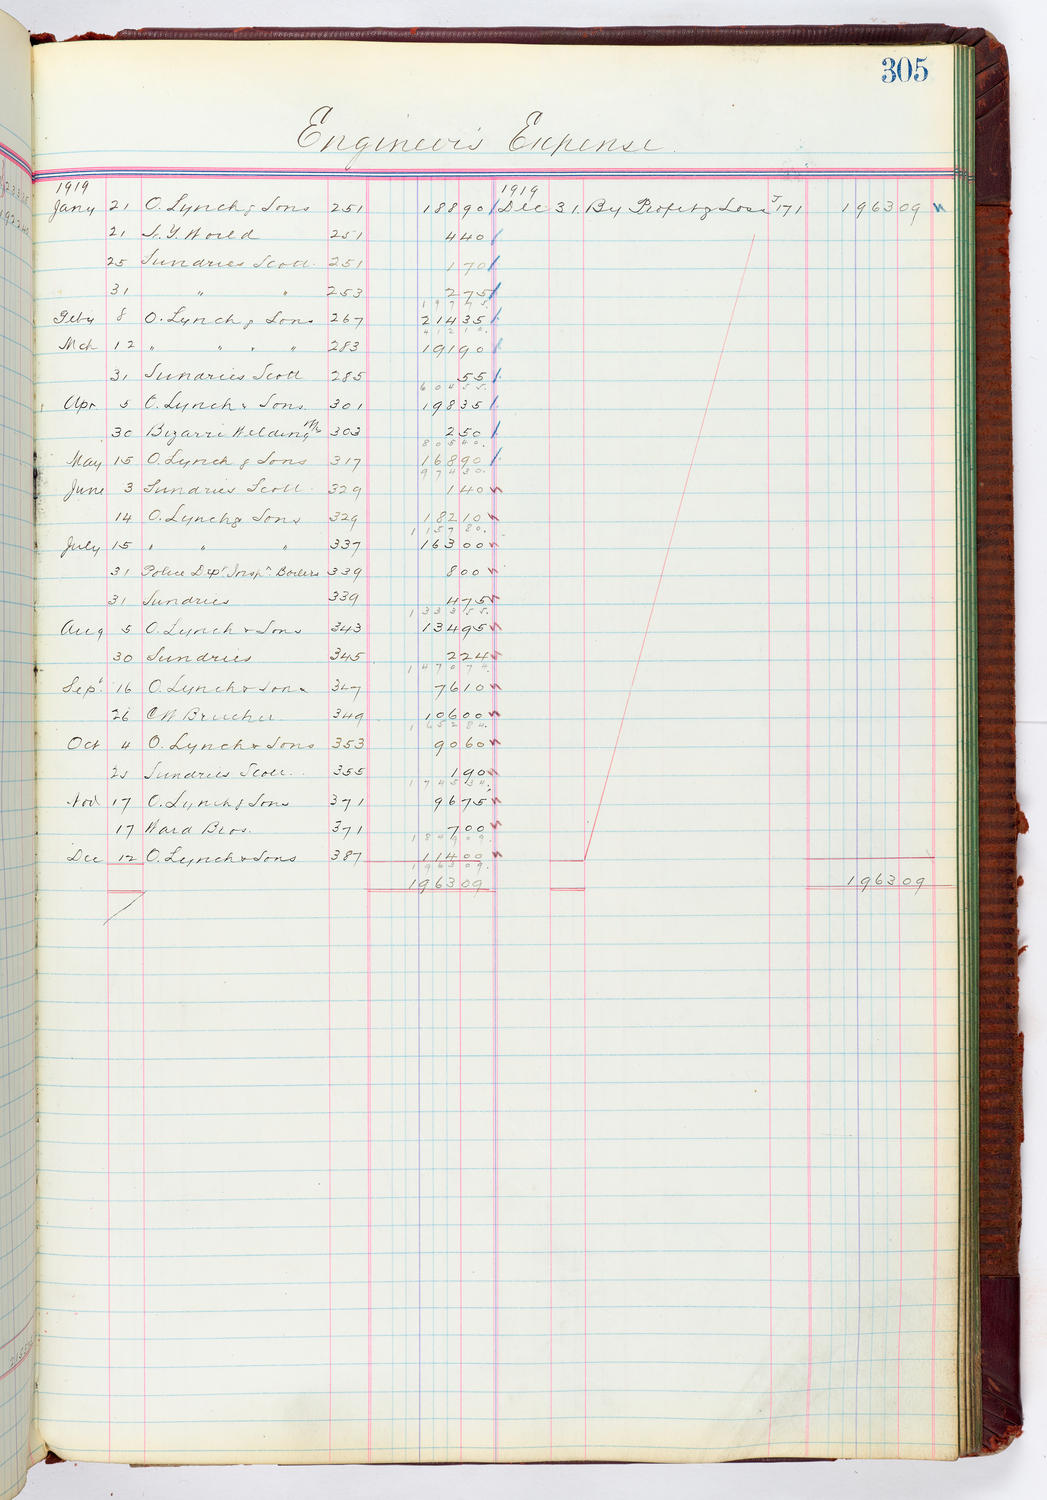 305
Engineer's Expense
1919 1919
Jany 21 O. Lynch & Sons 251 188 90 Dec 31. By Profit & Loss J 171 1963 09
21 N.Y. World 251 4 40
25 Sundries Scott. 251 1 70
31 " " 253 2 75
197 75.
Feby 8 O. Lynch & Sons 267 214 35
412 10.
Mch 12 " " " " 283 191 90
31 Sundries Scott 285 55
604 55.
Apr 5 O. Lynch & Sons. 301 198 35
30 Bizarri Welding 303 2 50
805 40.
May 15 O. Lynch & Sons 317 168 90
974 30.
June 3 Sundries Scott 329 1 40
14 O. Lynch & Sons 329 182 10
1157 80.
July 15 " " " 337 163 00
31 Police Dept Inspn Boilers 339 8 00
31 Sundries 339 4 75
1333 55.
Aug 5 O. Lynch & Sons 343 134 95
30 Sundries 345 2 24
1470 74.
Sept 16 O. Lynch & Sons 347 76 10
26 C W Brucher 349 106 00
1652 84.
Oct 4 O. Lynch & Sons 353 90 60
25 Sundries Scott. 355 1 90
1745 34.
Nov 17 O. Lynch & Sons 371 96 75
17 Ward Bros. 371 7 00
1849 09.
Dec 12 O. Lynch & Sons 387 114 00
1963 09.
1963 09 1963 09